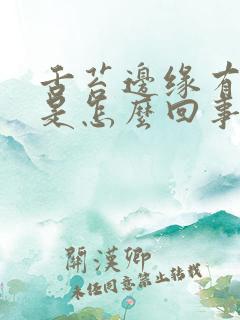 舌苔邊缘有
是怎麼回事
關漢卿
未经同意禁止转载